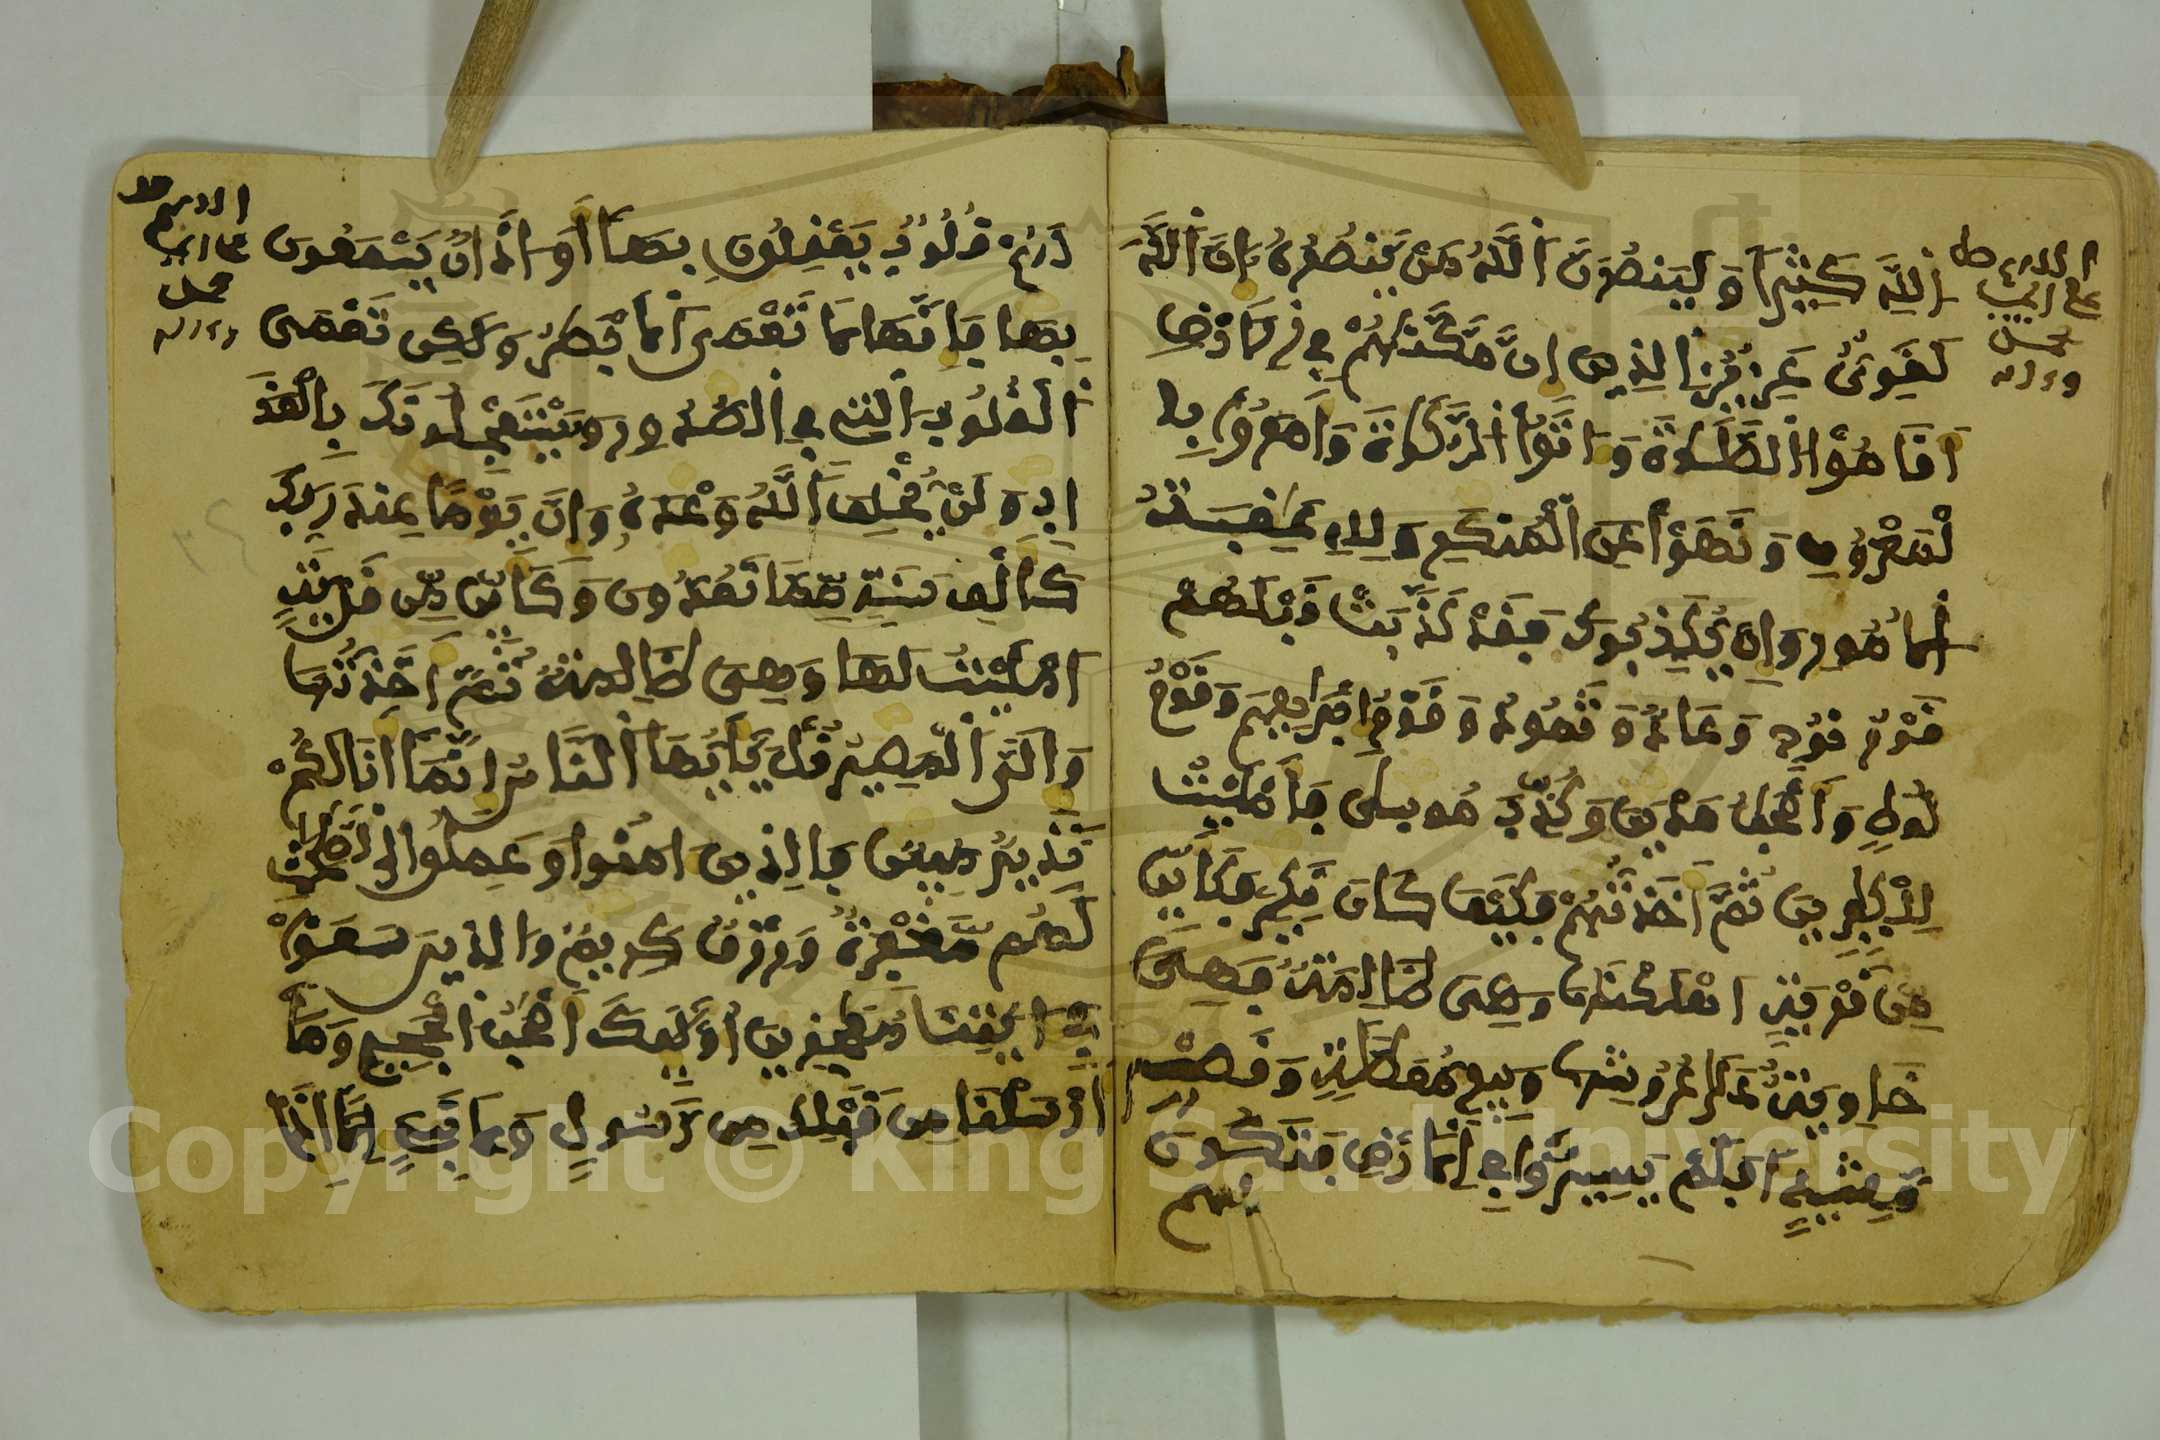 اللهِ كَثِيرًا وَلَيَنصُرَنَّ اللَّهُ مَنْ يَّنصُرُهُ إِنَّ اللَّهَ
لَقَوِيٌّ عَزِيزٌ الذِينَ إِن مَّكَّنَّاهُمْ فِي الَارْضِ
أَقَامُوا الصَّلَوٰةَ وَءَاتَوُا الزَّكَوٰةَ وَأَمَرُوا بِا
لْمَعْرُوفِ وَنَهَوْا عَنِ الْمُنكَرِ وَلِلهِ عَاقِبَةُ
الُامُورِ وَإِنْ يُّكَذِّبُوكَ فَقَدْ كَذَّبَتْ قَبْلَهُمْ
قَوْمُ نُوحٍ وَعَادٌ وَثَمُودُ وَقَوْمُ إِبْرَاهِيمَ وَقَوْمُ
لُوطٍ وَأَصْحَابُ مَدْيَنَ وَكُذِّبَ مُوسَىٰ فَأَمْلَيْتُ
لِلْكٰفِرِينَ ثُمَّ أَخَذْتُهُمْ فَكَيْفَ كَانَ نَكِيرِ فَكَأَيِّن
مِّن قَرْيَةٍ اَهْلَكْنَاهَا وَهِيَ ظَالِمَةٌ فَهِيَ
خَاوِيَةٌ عَلَىٰ عُرُوشِهَا وَبِيرٍ مُّعَطَّلَةٍ وَقَصْرٍ
مَّشِيدٍ اَفَلَمْ يَسِيرُوا فِي الَارْضِ فَتَكُونَ
لهم
لَهُمْ قُلُوبٌ يَعْقِلُونَ بِهَا أَوَ اٰذَانٌ يَسْمَعُونَ
بِهَا فَإِنَّهَا لَا تَعْمَى الَابْصٰرُ وَلَكِن تَعْمَى
الْقُلُوبُ الَّتِي فِي الصُّدُورِ وَيَسْتَعْجِلُونَكَ بِالْعَذَ
ابِ وَلَنْ يُّخْلِفَ اللَّهُ وَعْدَهُ وَإِنَّ يَوْمًا عِندَ رَبِّكَ
كَأَلْفِ سَنَةٍ مِّمَّا تَعُدُّونَ وَكَأَيِّن مِّن قَرْيَةٍ
اَمْلَيْتُ لَهَا وَهِيَ ظَالِمَةٌ ثُمَّ أَخَذْتُهَا
وَإِلَيَّ الْمَصِيرُ قُلْ يَا أَيُّهَا النَّاسُ إِنَّمَا أَنَا لَكُمْ
نَذِيرٌ مُّبِينٌ فَالذِينَ ءَامَنُوا وَعَمِلُوا الصَّالِحَاتِ
لَهُم مَّغْفِرَةٌ وَرِزْقٌ كَرِيمٌ وَالذِينَ سَعَوْا
فِي ءَايَاتِنَا مُعَاجِزِينَ أُوْلَئِكَ أَصْحَابُ الْجَحِيمِ وَمَا
أَرْسَلْنَا مِن قَبْلِكَ مِن رَّسُولٍ وَلَا نَبِيٍّ اِلَّا إِذَا
Copyright © King Saud University